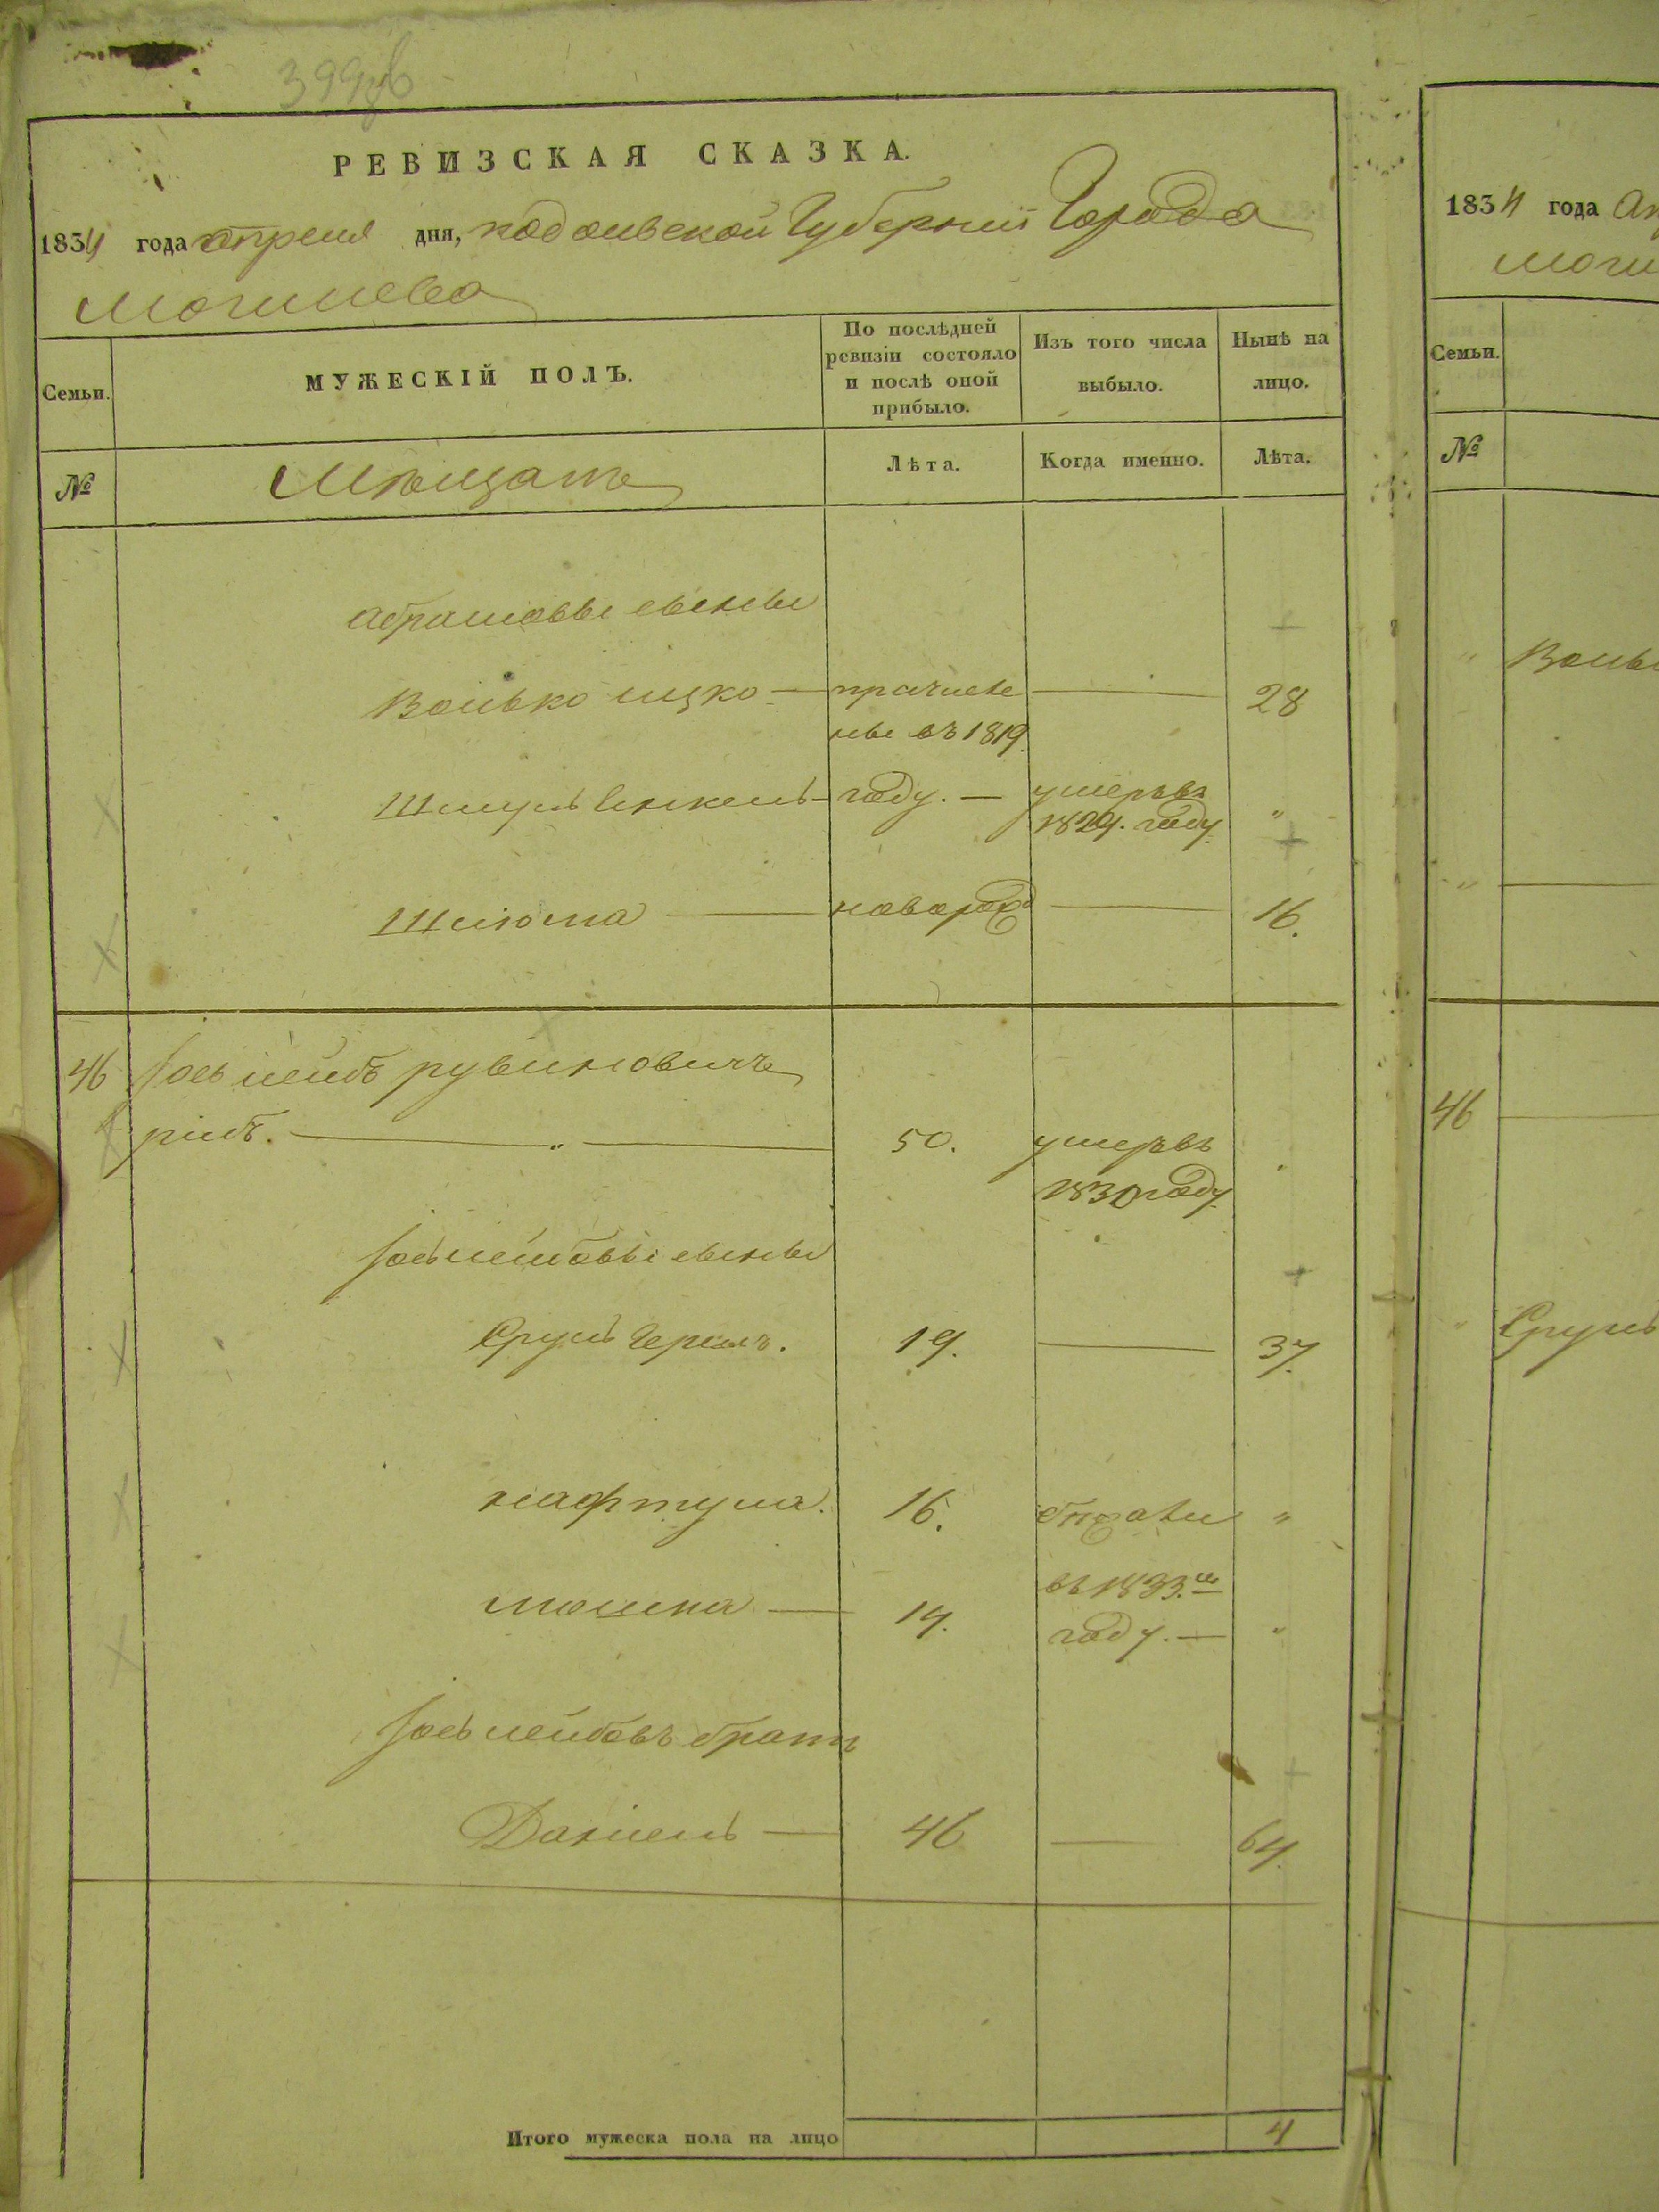 399об
РЕВИЗСКАЯ СКАЗКА.
1834 года апреля дня, подольской Губернии Города
Могилева
Семьи.
МУЖЕСКІЙ ПОЛЪ.
По послѣдней ревизіи состояло и послѣ оной прибыло.
Изъ того числа выбыло.
Нынѣ на лицо.
№
Мѣщане
Лѣта.
Когда именно.
Лѣта.
Абрамовы сыновья
Волько ицко — причисле — 28
ны въ 1819
Шмуль — году. — умеръ въ "
1829. году
Шлюма — наворож — 16.
46 Іось лейбъ рувиновичъ
50. умеръ въ
1830 году
Іось лейбовы сыновья
Сруль Гершъ. 19. — 37.
нафтула. 16. "
мошка — 14. въ 1833.м
году. — "
Іось лейбовъ братъ
Даниель — 46 — 64.
Итого мужеска пола на лицо 4
1834 года Ап
Моги
Семьи.
№
" Воль
"
46
" Сруль